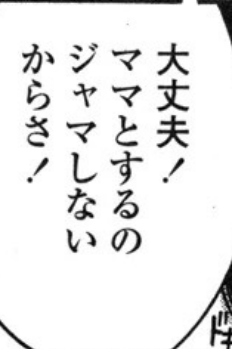 大丈夫！
ママとするの
ジャマしない
からさ！
ドキ